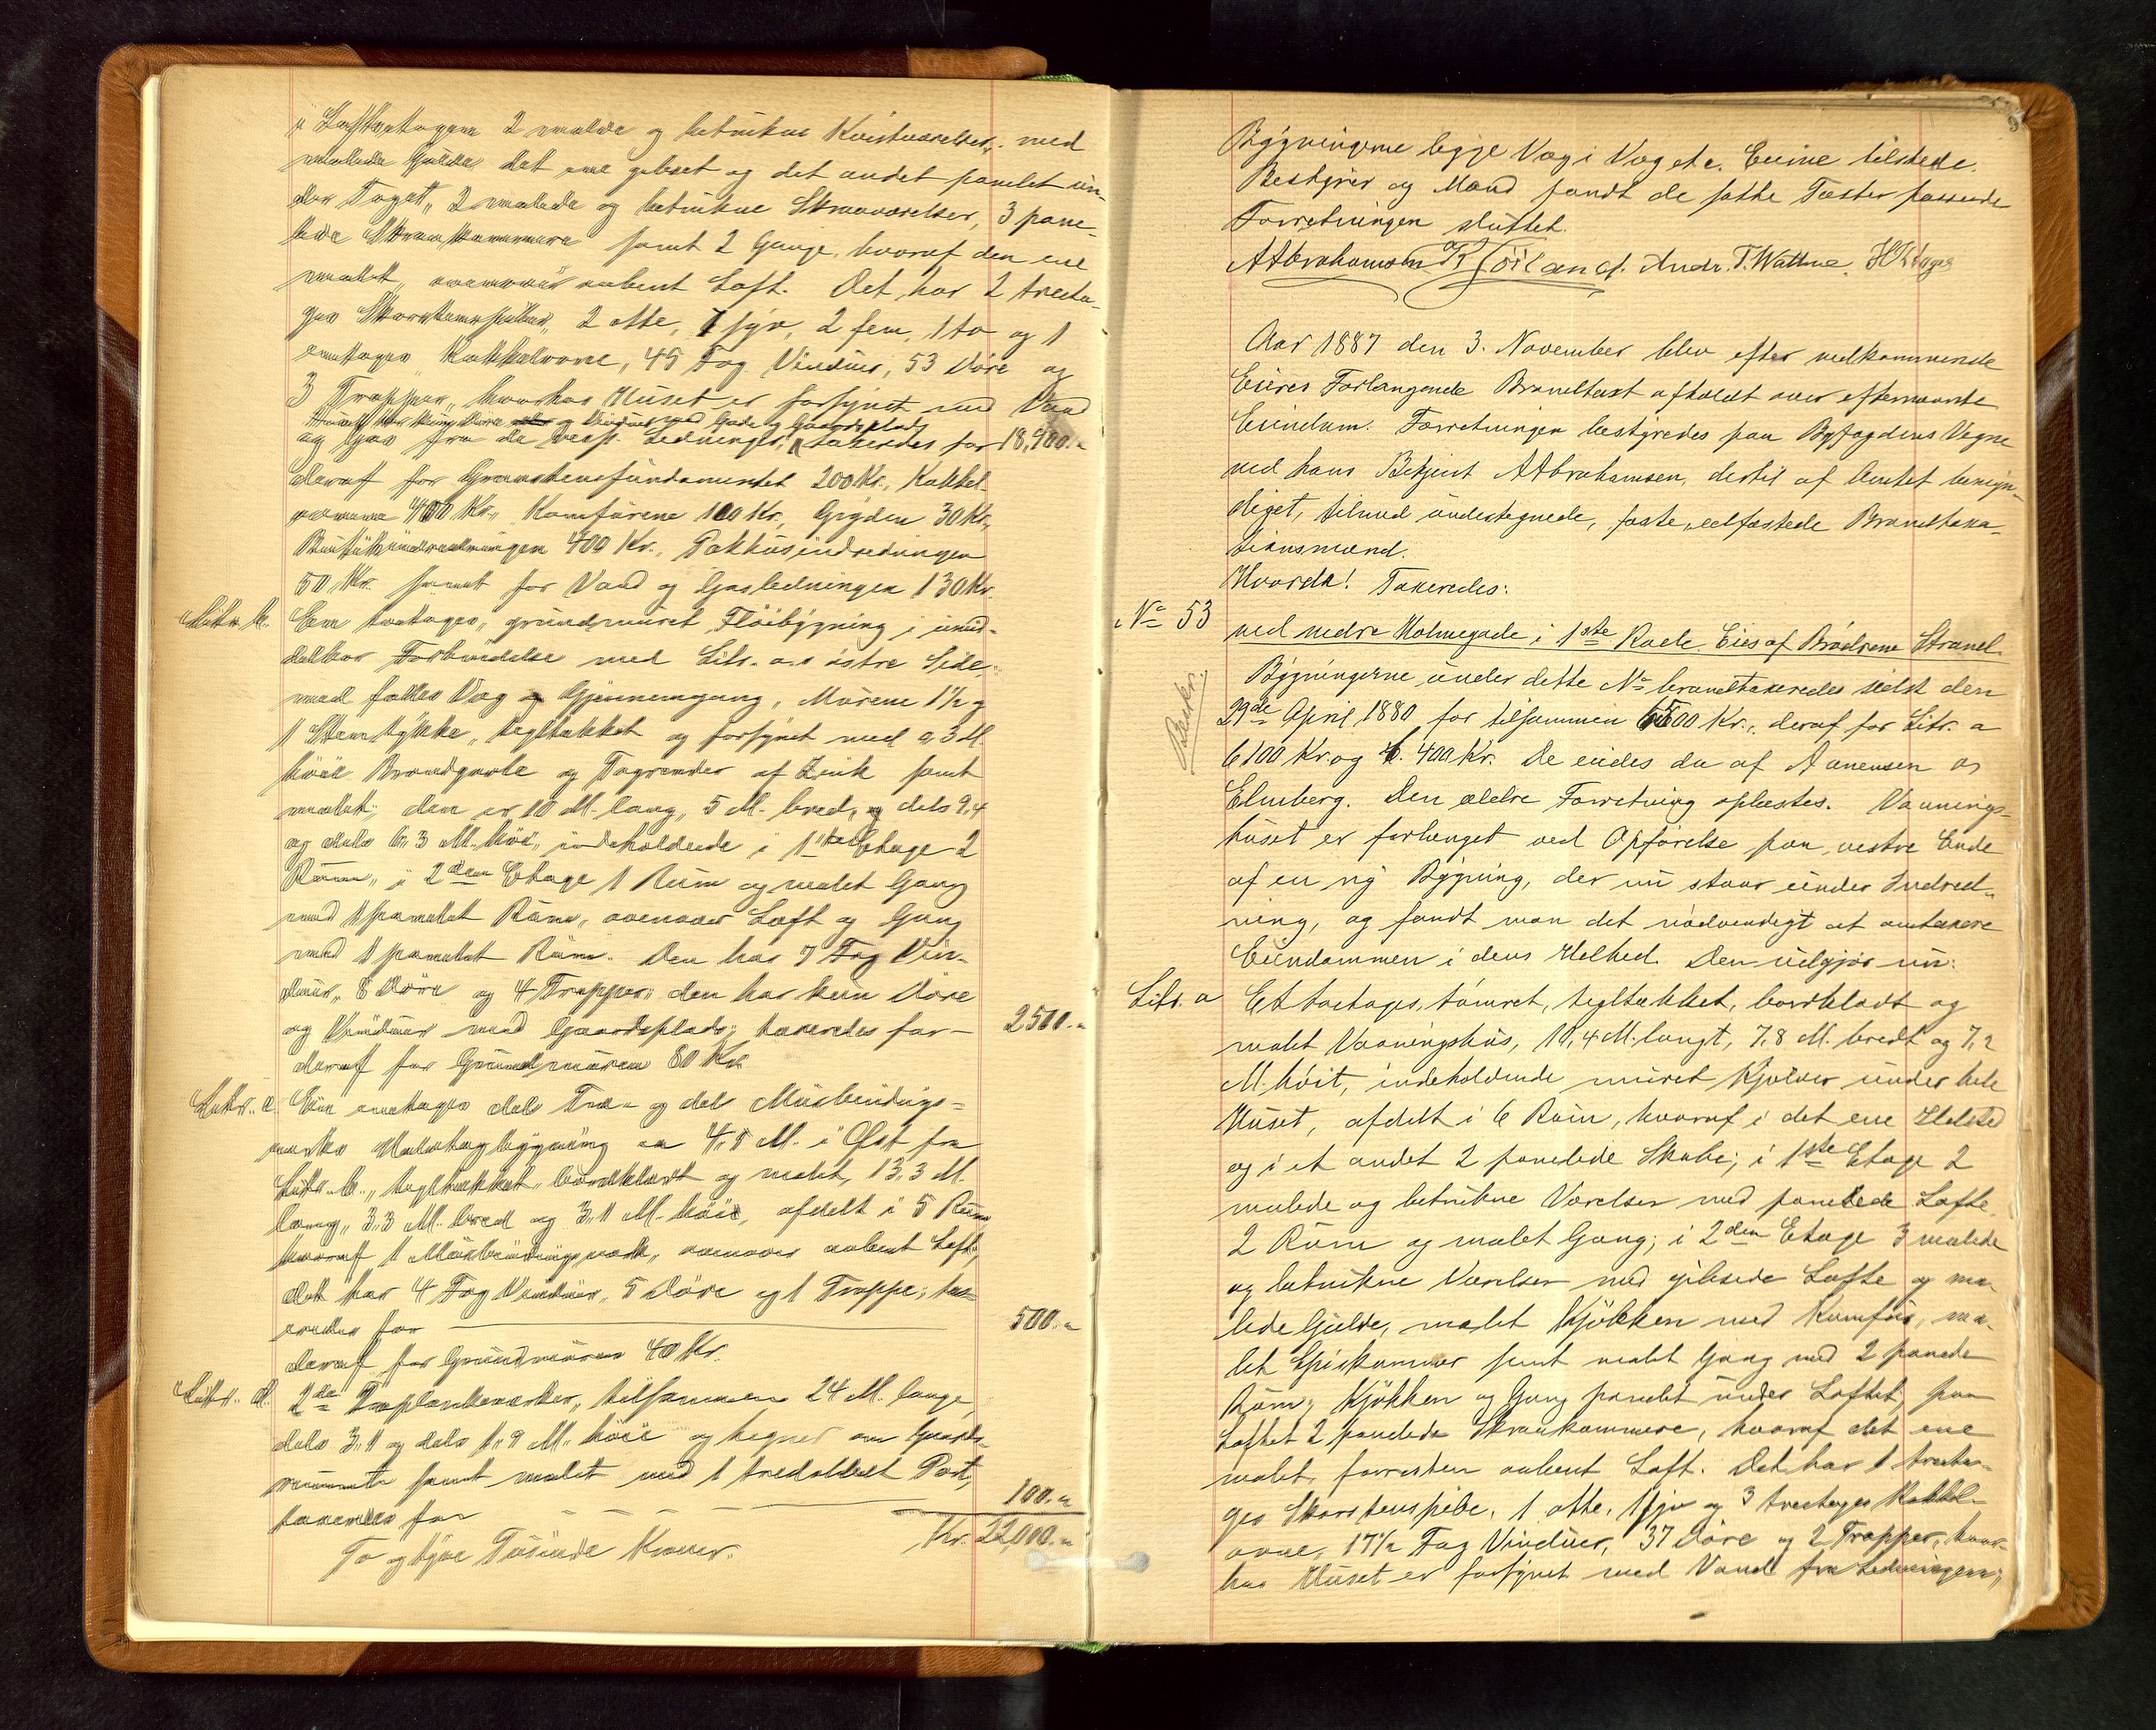 i Loftsetagen 2 malede og betrukne Kvistværelser, med
malede Gulve det ene gibset og det andet panelet un-
der Taget, 2 malede og betrukne Skraaværelser, 3 pane-
lede Skraakammere samt 2 Gange, hvoraf den ene
malet, ovenover aabent Loft. Det har 2 treeta-
ges Skorstenspiber, 2 otte, 1 syv, 2 fem, 1 to og 1
eenetages Kakkelovne, 45 Fag Vinduer, 53 Døre og
3 Trapper, hvorhos Huset er forsynet med Vand
Huset har kun Døre og Vinduer mod Gade og Gaardsplads
og Gas fra de resp. Ledninger; taxeredes for 18,900.„
deraf for Graastensfundamentet 200 Kr., Kakkel-
ovnene 400 Kr., Komfurene 100 Kr., Gryden 30 Kr.,
Butikindredningen 400 Kr., Pakhusindredningen
50 Kr. samt for Vand og Gasledningen 130 Kr.
Litr. b. Een toetages, grundmuret Fløibygning i umid-
delbar Forbindelse med Litr. a.s østre Side,
med fælles Væg og Gjennemgang, Murene 1½ og
1 Steen tykke, tegltækket og forsynet med a 3 M.
høie Brandgavle og Tagrender af Zink samt
malet; den er 10 M. lang, 5 M. bred, og dels 9,4
og dels 6,3 M. høi, indeholdende i 1ste Etage 2
Rum, i 2den Etage 1 Rum og malet Gang
med 1 panelet Rum, ovenover Loft og Gang
med 1 panelet Rum. Den har 7 Fag Vin-
duer, 8 Døre og 4 Trapper; den har kun Døre
og Vinduer mod Gaardsplads; taxeredes for – 2500.„
deraf for Grundmuren 80 Kr.
Litr. c. Een eenetages dels Træ- og dels Muurbindings-
verks Udhusbygning ca 4,5 M. i Øst fra
Litr. b., tegltækket, bordklædt og malet, 13,3 M.
lang, 3,3 M. bred og 3,1 M. høi, afdelt i 5 Rum
hvoraf 1 Muurbindingsverk, ovenover aabent Loft;
det har 4 Fag Vinduer, 5 Døre og 1 Trappe; tax-
eredes for 500.„
deraf for Grundmuren 40 Kr.
Litr. d. 2de Træplankeverker, tilsammen 24 M. lange,
dels 3,1 og dels 1,9 M. høie og hegner om Gaards-
rummet samt malet med 1 tredobbelt Port,
taxeredes for 100.„
To og tyve Tusinde Kroner. Kr. 22,000.„
Bygningerne ligge Væg i Væg etc. Eierne tilstede.
Bestyrer og Mænd fandt de satte Taxter passende
Forretningen sluttet.
A Abrahamsen Andr. T. Wattne.
Aar 1887 den 3. November blev efter vedkommende
Eieres Forlangende Brandtaxt afholdt over efternævnte
Eiendom. Forretningen bestyredes paa Byfogdens Vegne
ved hans Betjent A Abrahamsen, dertil af Amtet bemyn-
diget, tilmed undertegnede, faste, edfæstede Brandtaxa-
tionsmænd.
Hvorda! Taxeredes:
No 53 ved nedre Holmegade i 1ste Rode. Eies af Brødrene Strand.
Bygningerne under dette No brandtaxeredes sidst den
29de April 1880 for tilsammen 6500 Kr., deraf for Litr. a
6100 Kr. og b. 400 Kr. De eiedes da af Aanensen og
Elmberg. Den ældre Forretning oplæstes. Vaanings-
huset er forlænget ved Opførelse paa vestre Ende
af en ny Bygning, der nu staar under Indred-
ning, og fandt man det nødvendigt at omtaxere
Eiendommen i dens Helhed. Den udgjør nu:
Litr. a Et toetages, tømret, tegltækket, bordklædt og
malet Vaaningshus, 10,4 M. langt, 7,8 M. bredt og 7,2
M. høit, indeholdende muret Kjælder under hele
Huset, afdelt i 6 Rum, hvoraf i det ene Ildsted
og i et andet 2 panelede Skabe; i 1ste Etage 2
malede og betrukne Værelser med panelede Lofte,
2 Rum og malet Gang; i 2den Etage 3 malede
og betrukne Værelser med gibsede Lofte og ma-
lede Gulve, malet Kjøkken med Komfur, ma-
let Spiskammer samt malet Gang med 2 panede
Rum; Kjøkken og Gang panelet under Loftet; paa
Loftet 2 panelede Skraakammere, hvoraf det ene
malet, forresten aabent Loft. Det har 1 treeta-
ges Skorstenspibe, 1 otte, 1 syv og 3 treetages Kakkel-
ovne, 17½ Fag Vinduer, 37 Døre og 2 Trapper, hvor-
hos Huset er forsynet med Vand fra Ledningen;